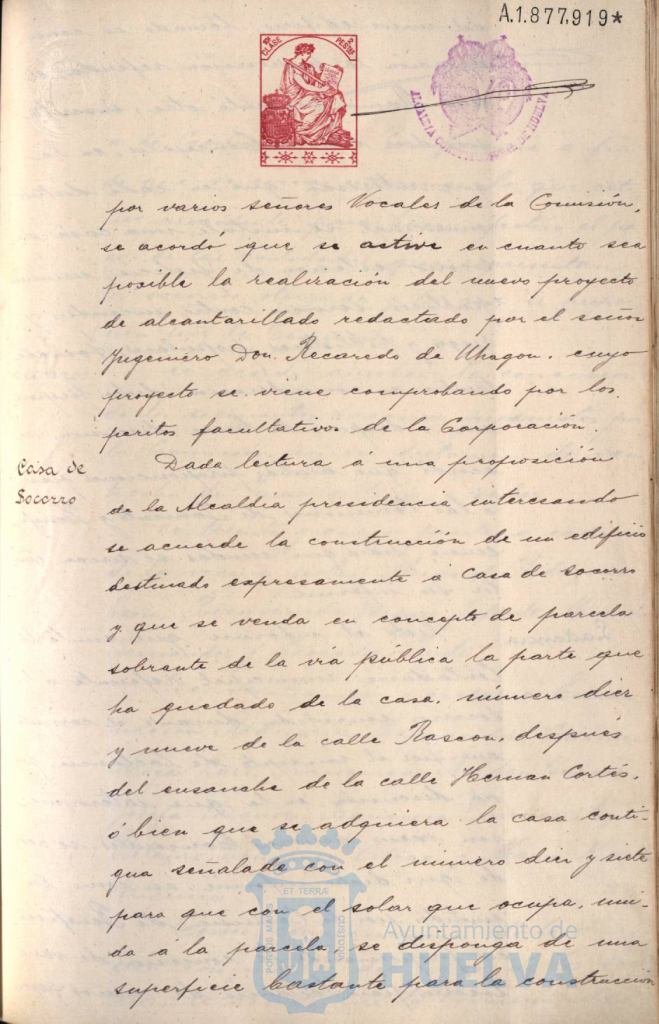 A.1.877,919*
CLASE
PESTAS
2
ALCALDIA CONSTITUCIONAL DE HUELVA
por varios señores Vocales de la Comisión,
se acordó que se active en cuanto sea
posible la realización del nuevo proyecto
de alcantarillado redactado por el señor
Yngeniero Don. Recaredo de Uhagon. cuyo
proyecto se viene comprobando por los
peritos facultativos de la Corporación.
Casa de
Socorro
Dada lectura á una proposición
de la Alcaldía presidencia interesando
se acuerde la construcción de un edificio
destinado expresamente á Casa de Socorro
y que se venda en concepto de parcela
sobrante de la vía pública la parte que
ha quedado de la casa, número diez
y nueve de la calle Rascon, despues
del ensanche de la calle Hernan Cortés,
ó bien que se adquiera la casa conti-
gua señalada con el número diez y siete
para que con el solar que ocupa, uni-
da á la parcela, se disponga de una
superficie bastante para la construcción
ET TERRÆ
PORTUS MARIS
CUSTODIA
Ayuntamiento de
HUELVA